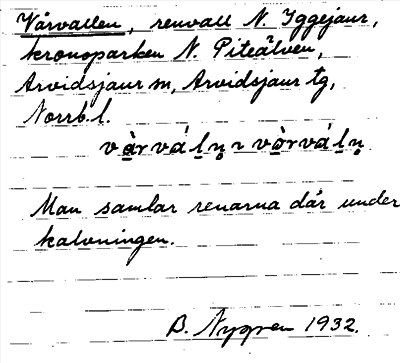 Vårvallen, renvall N. Yggejaur,
kronoparken N. Piteälven,
Arvidsjaur sn, Arvidsjaur tg,
Norrb. l.
Man samlar renarna där under
kalvningen.
B. Nygren 1932.